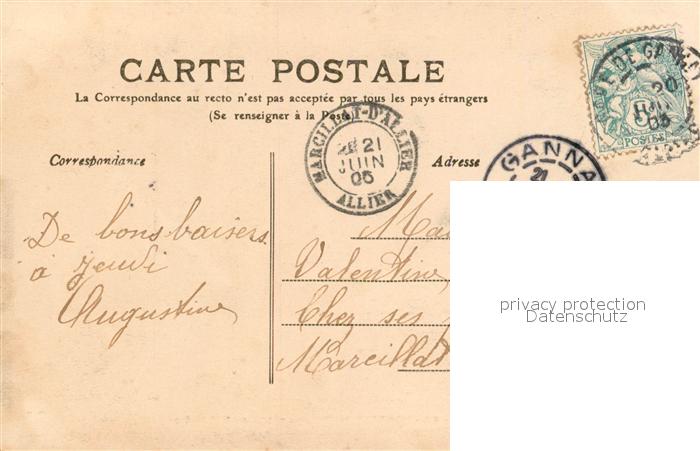 CARTE POSTALE
La Correspondance au recto n'est pas acceptée par tous les pays étrangers
(Se renseigner à la Poste)
MARCILLAT-D'ALLIER
21
JUIN
05
ALLIER
GANNA
21
20
05
5
POSTES
Correspondance
Adresse
De bons baisers
à jeudi
Augustine
Valentine
Chez ses
Marcillat
privacy protection
Datenschutz